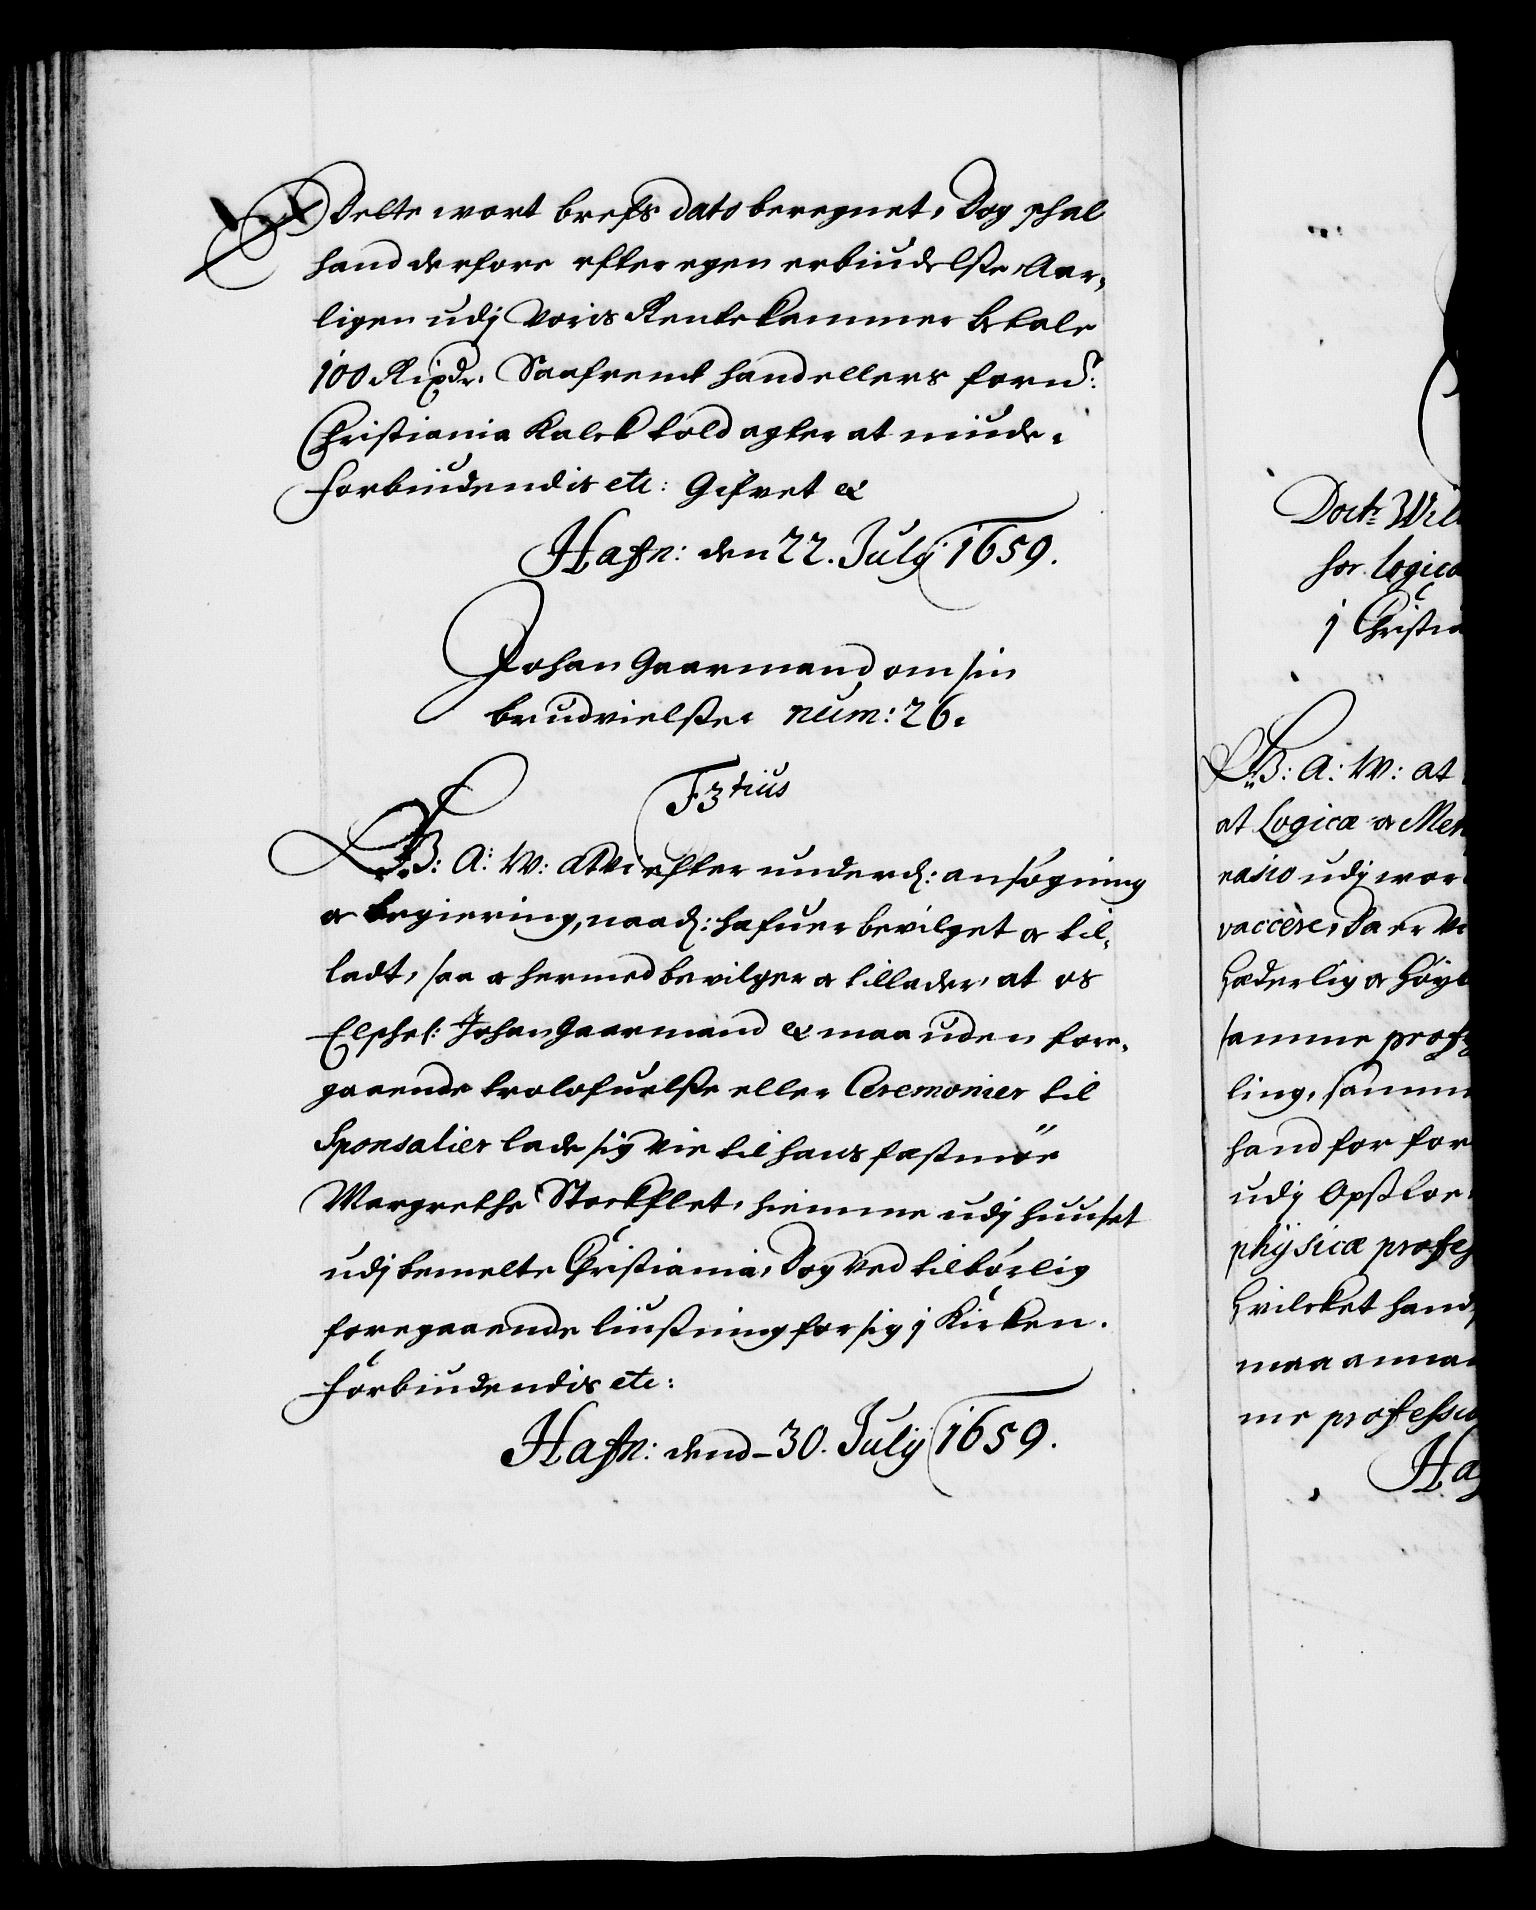 Delte wort brefs dato beregnet, Dog schal
hand derfore efter egen erbiudelsse, Aar-
ligen udj Voris Rentekammer betale
100 Rixdr. Saafremt hand ellers fornd:
Christiania Kalck told agter at niude.
Forbiudendis etc: Gifvet &
Hafn: den 22. Julij 1659.
Johan Gaarmand om sin
brudvielsse. num: 26.
F3tius
G: A: W: at Vi efter underd: ansøgning
oc begiering, naad: hafuer bevilget oc til-
ladt, saa oc hermed bevilger oc tillader, at os
Elschel: Johan Gaarmand & maa uden fore-
gaaende trolofuelsse eller Ceremonier til
Sponsalier lade sig vie til hans fæstmöe
Margrethe Stockflet, hiemme udj huuset
udj bemelte Christiania, Dog ved tilbørlig
foregaaende liusning for sig j Kirken.
Forbiudendis etc:
Hafn: dend 30. Julij 1659.
Doctr Wil
for Logica
j Christia
G: A: W: at
at Logicæ oc Me
nasio udj wor
vaccere, Da er Vi
Hæderlig oc Høyl
samme profe
ling, samm
hand for for
udj Opsloe
physicæ profes
Hvilcket hand
maa anna
me professi
Ha